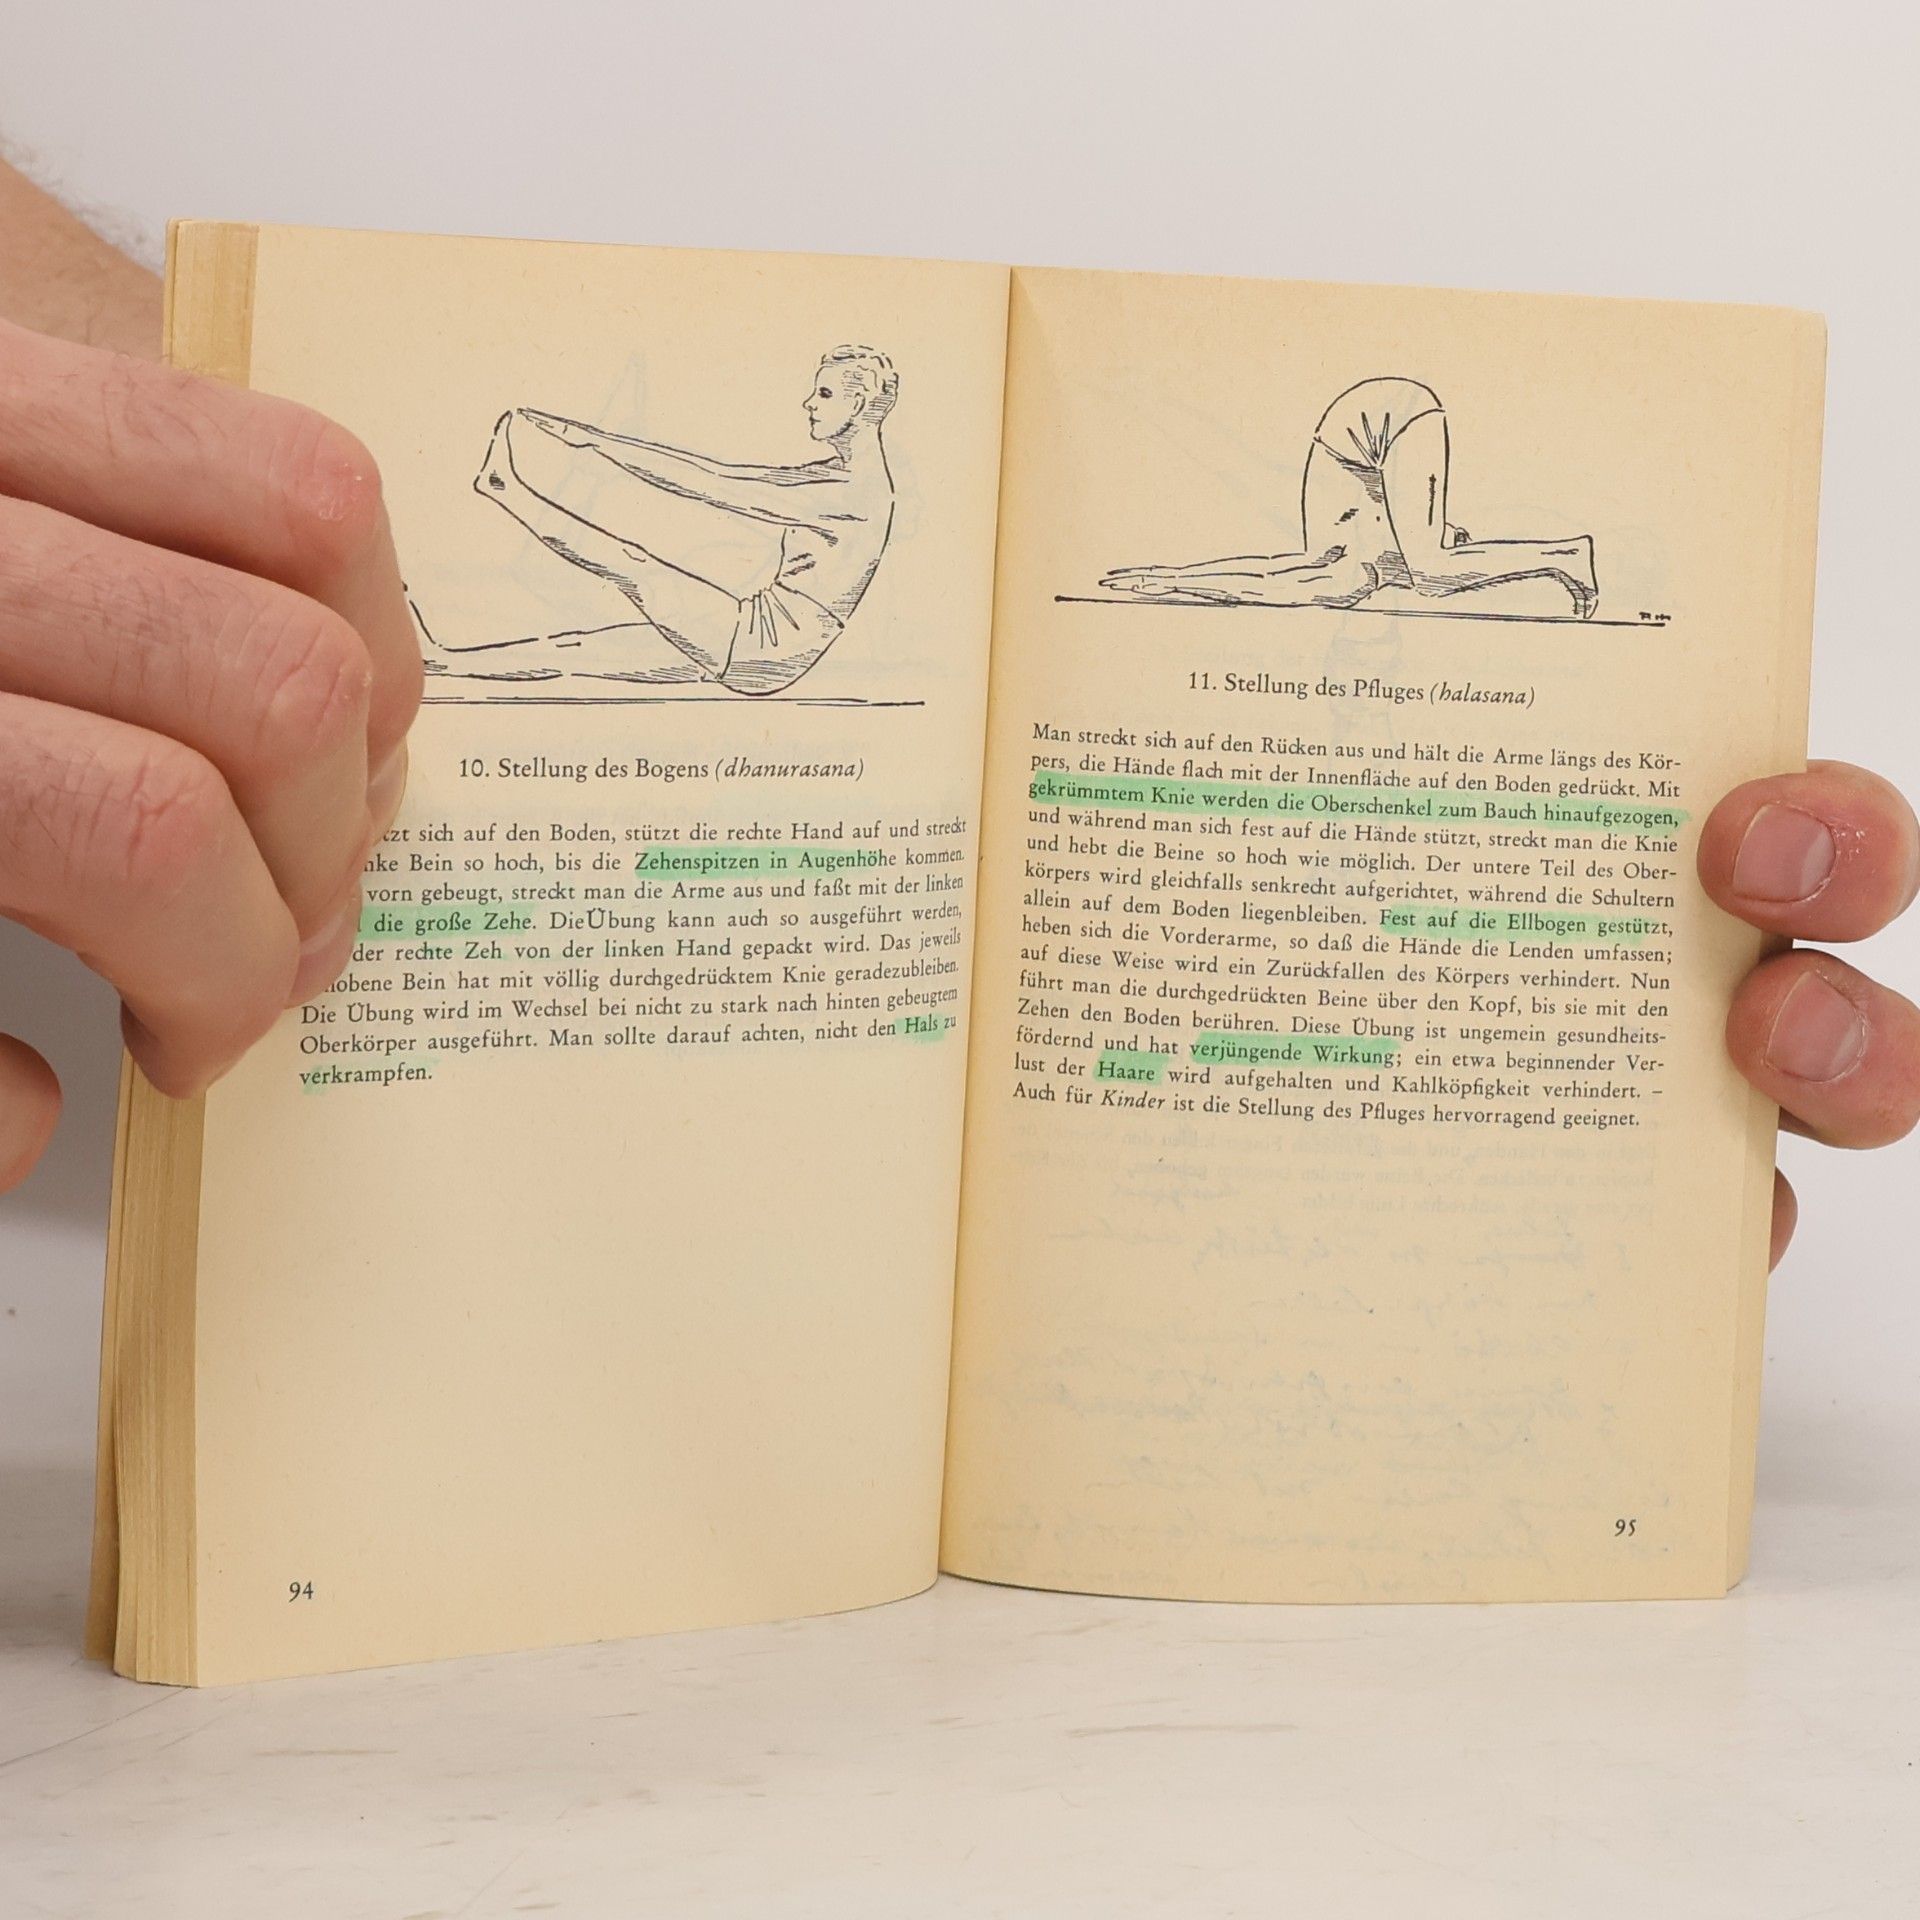 10. Stellung des Bogens (dhanurasana)
sich auf den Boden, stützt die rechte Hand auf und streckt
Bein so hoch, bis die Zehenspitzen in Augenhöhe kommen.
vorn gebeugt, streckt man die Arme aus und faßt mit der linken
die große Zehe. DieÜbung kann auch so ausgeführt werden,
der rechte Zeh von der linken Hand gepackt wird. Das jeweils
Bein hat mit völlig durchgedrücktem Knie geradezubleiben.
Die Übung wird im Wechsel bei nicht zu stark nach hinten gebeugtem
Oberkörper ausgeführt. Man sollte darauf achten, nicht den Hals zu
verkrampfen.
94
11. Stellung des Pfluges (halasana)
Man streckt sich auf den Rücken aus und hält die Arme längs des Kör-
pers, die Hände flach mit der Innenfläche auf den Boden gedrückt. Mit
gekrümmtem Knie werden die Oberschenkel zum Bauch hinaufgezogen,
und während man sich fest auf die Hände stützt, streckt man die Knie
und hebt die Beine so hoch wie möglich. Der untere Teil des Ober-
körpers wird gleichfalls senkrecht aufgerichtet, während die Schultern
allein auf dem Boden liegenbleiben. Fest auf die Ellbogen gestützt,
heben sich die Vorderarme, so daß die Hände die Lenden umfassen;
auf diese Weise wird ein Zurückfallen des Körpers verhindert. Nun
führt man die durchgedrückten Beine über den Kopf, bis sie mit den
Zehen den Boden berühren. Diese Übung ist ungemein gesundheits-
fördernd und hat verjüngende Wirkung; ein etwa beginnender Ver-
lust der Haare wird aufgehalten und Kahlköpfigkeit verhindert. –
Auch für Kinder ist die Stellung des Pfluges hervorragend geeignet.
95